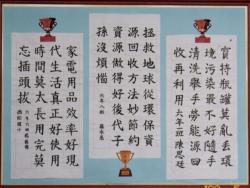 寶特瓶罐莫亂丟環
境污染最不好隨手
清洗舉手勞能源回
收再利用 六年二班 陳思廷
拯救地球從環保資
源回收方法妙節約
資源做得好後代子
孫沒煩惱
六年八班
家電用品效率好現
代生活真正好使用
時間莫太長用完莫
忘插頭拔